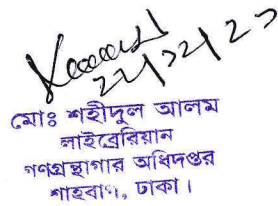 ২২/১২/২০
মোঃ শহীদুল আলম
লাইব্রেরিয়ান
গণগ্রন্থাগার অধিদপ্তর
শাহবাগ, ঢাকা।